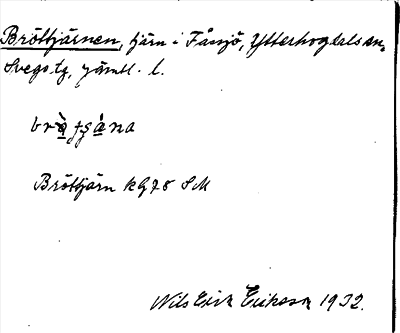 Bröttjärnen, tjärn i Fåssjö, Ytterhogdals sn,
Svegs tg, jämtl. l.
Bröttjärn kG78 SM
Nils Erik Eriksson 1932.